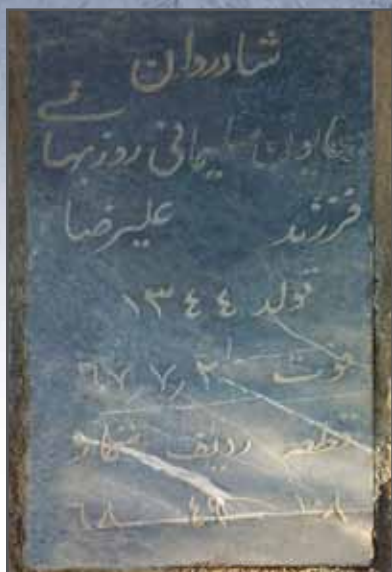 شادروان
همایون سلیمانی روزبهانی
فرزند علیرضا
تولد ۱۳۴۴
فوت ۶۷٫۷٫۲۱
قطعه ردیف شماره
۱۰۸ ۴۹ ۶۸